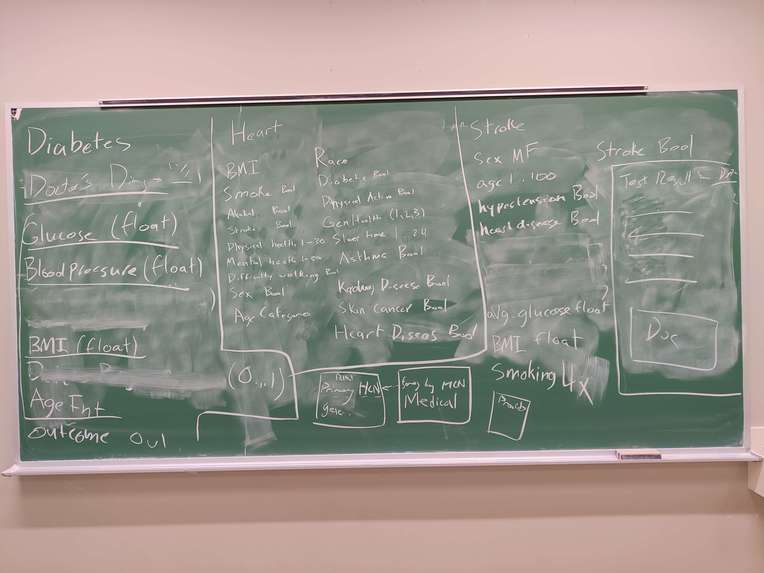 Diabetes
Glucose (float)
Blood pressure (float)
BMI (float)
Age Int
Outcome 0,1
Heart
BMI
Smoke Bool
Alcohol Bool
Stroke Bool
Physical health 1-30
Mental health
Difficulty walking Bool
Sex Bool
Age Categories
(0...1)
Race
Diabetic Bool
Physical Active Bool
Gen Health (1,2,3)
Sleep time 1 24
Asthma Bool
Kidney Disease Bool
Skin Cancer Bool
Heart Diseas Bool
Primary MCN
MCN
Medical
Stroke
Sex MF
age 1..100
hypertension Bool
heart disease Bool
avg. glucose float
BMI float
Smoking 4x
Stroke Bool
Test Result
Doc